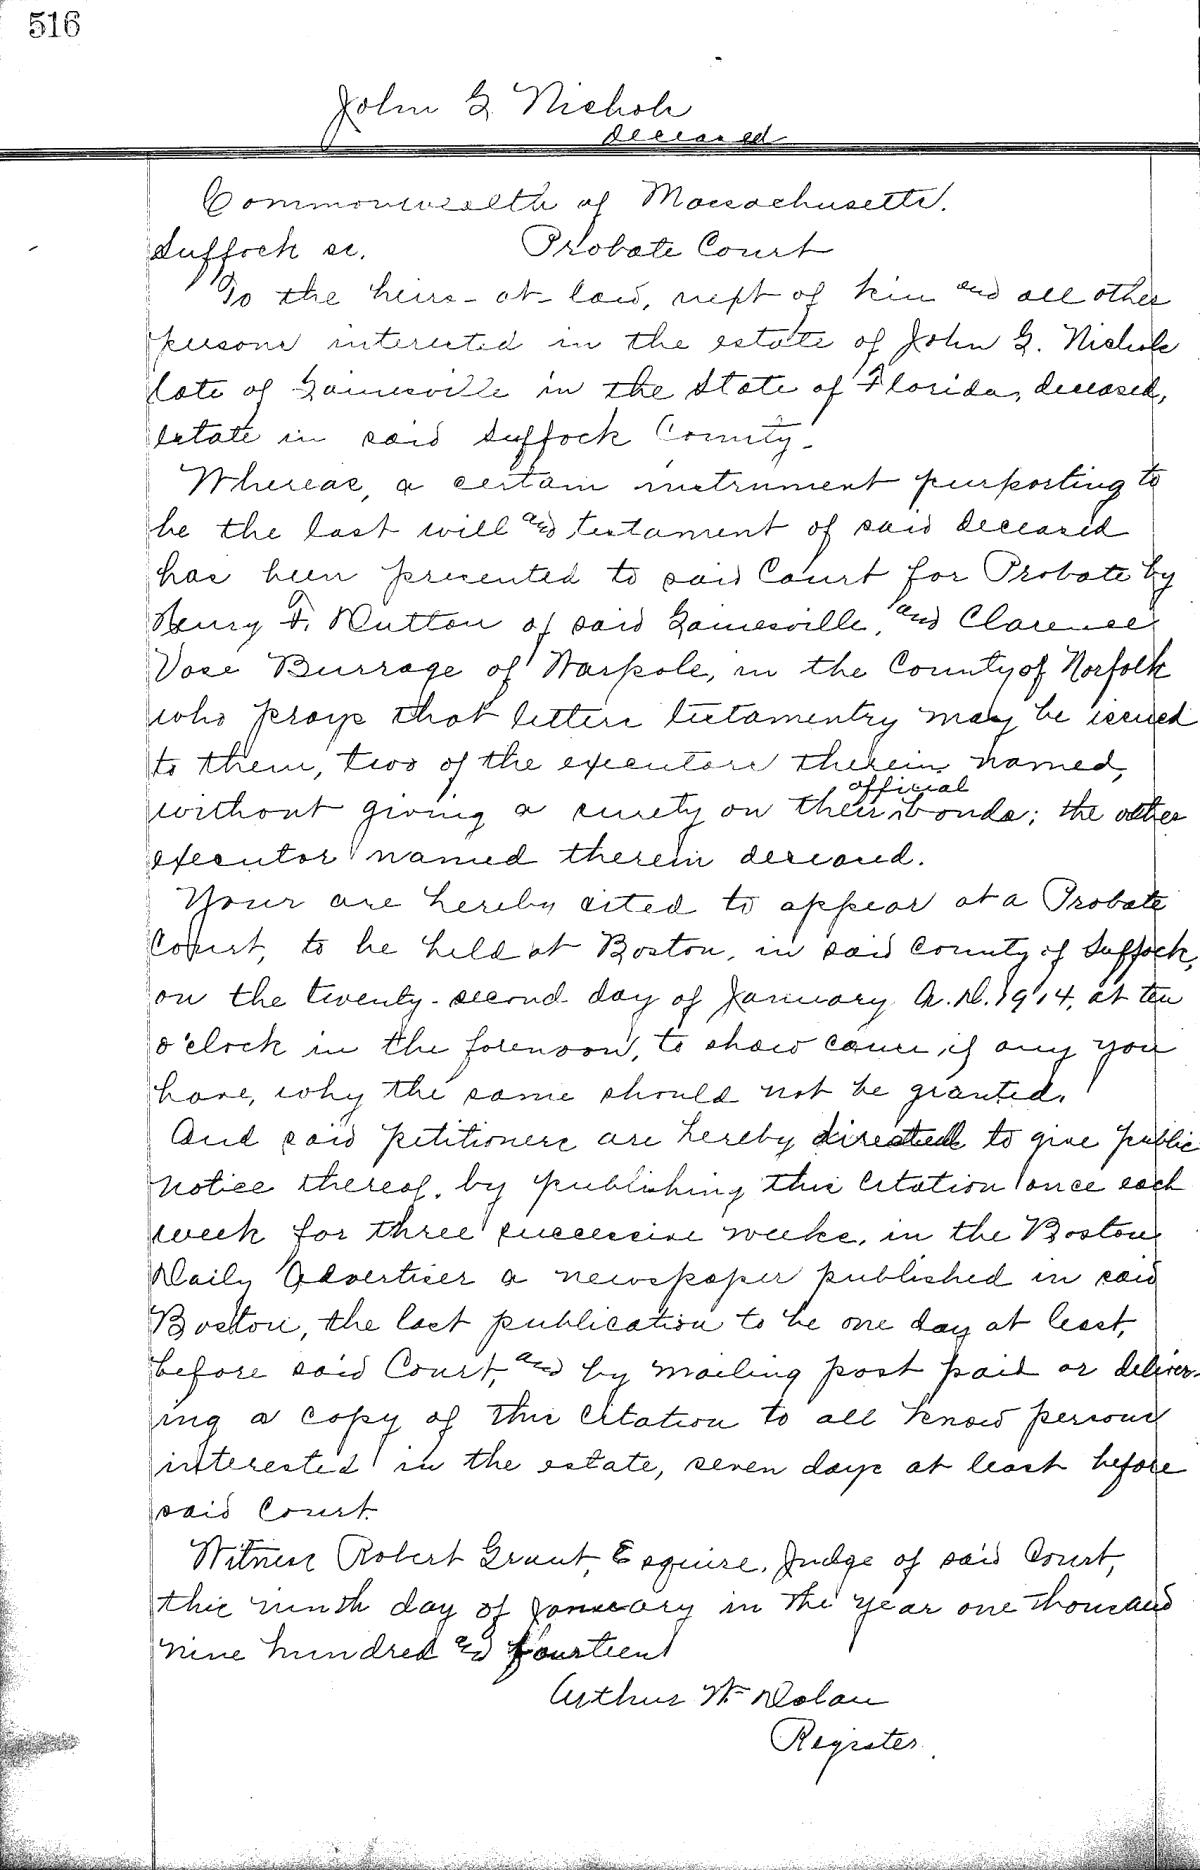 516
John G. Nichols
deceased
Commonwealth of Massachusetts.
Suffock ss. Probate Court
To the heirs-at-law, next of kin and all other
persons interested in the estate of John G. Nichols
late of Gainesville in the State of Florida, deceased,
estate in said Suffock County.
Whereas, a certain instrument purporting to
be the last will and testament of said deceased
has been presented to said Court for Probate by
Henry F. Dutton of said Gainesville, and Clarence
Vose Burrage of Warpole, in the County of Norfolk
who prays that letters testamentry may be issued
to them, two of the executors therein named,
without giving a surety on their official bonds; the other
executor named therein deceased.
Your are hereby cited to appear at a Probate
Court, to be held at Boston, in said County of Suffock,
on the twenty-second day of January A.D. 1914, at ten
o'clock in the forenoon, to show cause, if any you
have, why the same should not be granted.
And said petitioners are hereby directed to give public
notice thereof, by publishing this citation once each
week for three successive weeks, in the Boston
Daily Advertiser a newspaper published in said
Boston, the last publication to be one day at least,
before said Court, and by mailing post paid or deliver-
ing a copy of this citation to all know persons
interested in the estate, seven days at least before
said Court.
Witness Robert Grant, Esquire, Judge of said Court,
this ninth day of January in the year one thousand
nine hundred and fourteen
Arthur W. Dolan
Register.